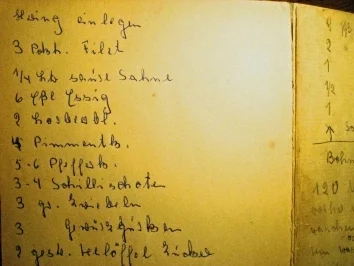 Hering einlegen
3 Pckch. Filet
1/4 Ltr saure Sahne
6 Eßl Essig
2 Lorbeerbl.
4 Pimmentk.
5-6 Pfefferk.
3-4 Schillischoten
3 gr. Zwiebeln
3 Gewürzgurken
2 gestr. Teelöffel Zucker
2
1
1/2
1
120